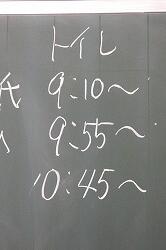 トイレ
氏 9:10〜
9:55〜
10:45〜